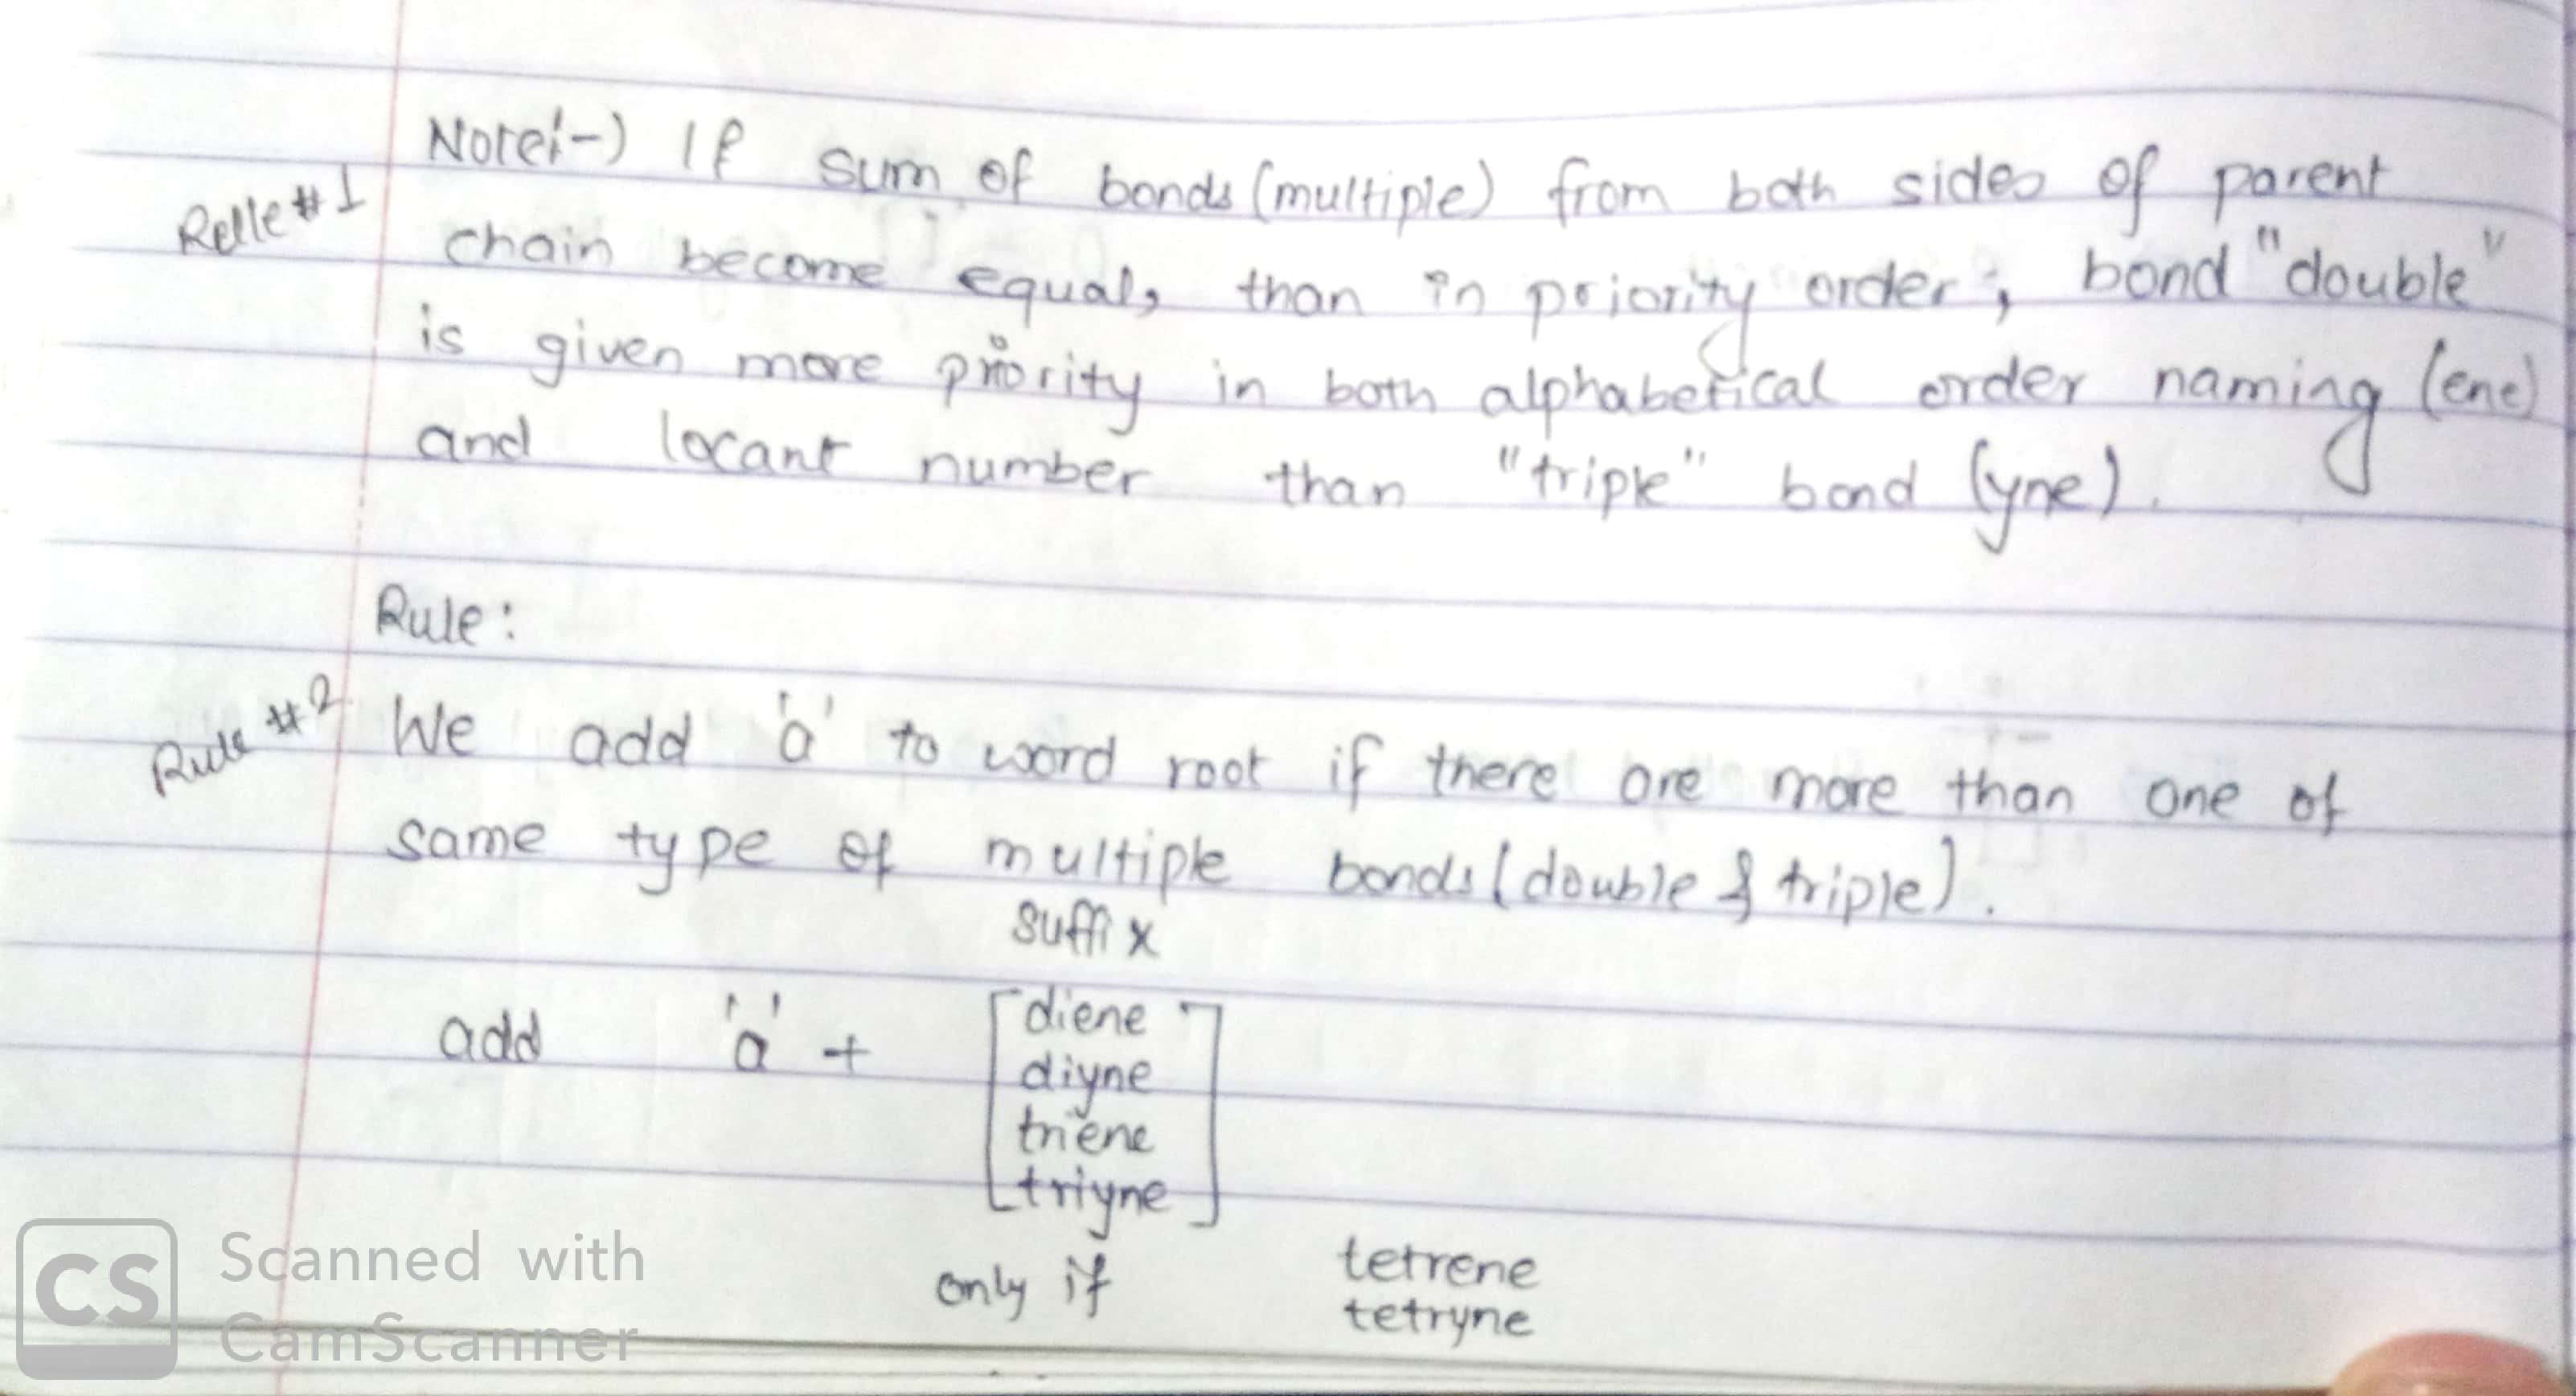 Note:-) If sum of bonds (multiple) from both sides of parent
Relle #1
chain become equal, than in priority order, bond "double"
is given more priority in both alphabetical order naming (ene)
and locant number than "triple" bond (yne).
Rule:
Rule #2
We add 'a' to word root if there are more than one of
same type of multiple bonds (double & triple).
suffix
add 'a' + diene
diyne
triene
triyne
only if
tetrene
tetryne
CS Scanned with
CamScanner